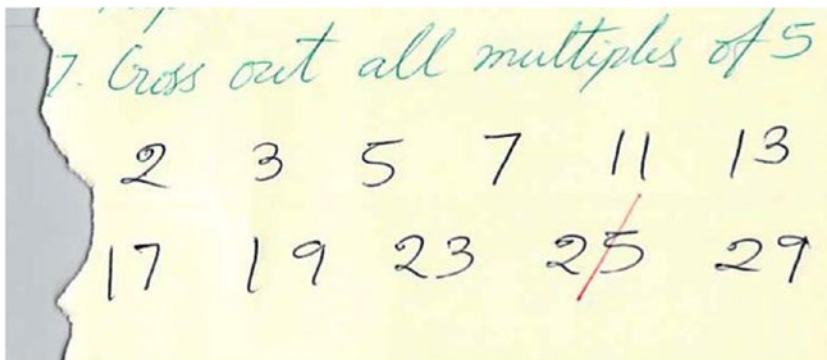 7. Cross out all multiples of 5
2 3 5 7 11 13
17 19 23 25 29